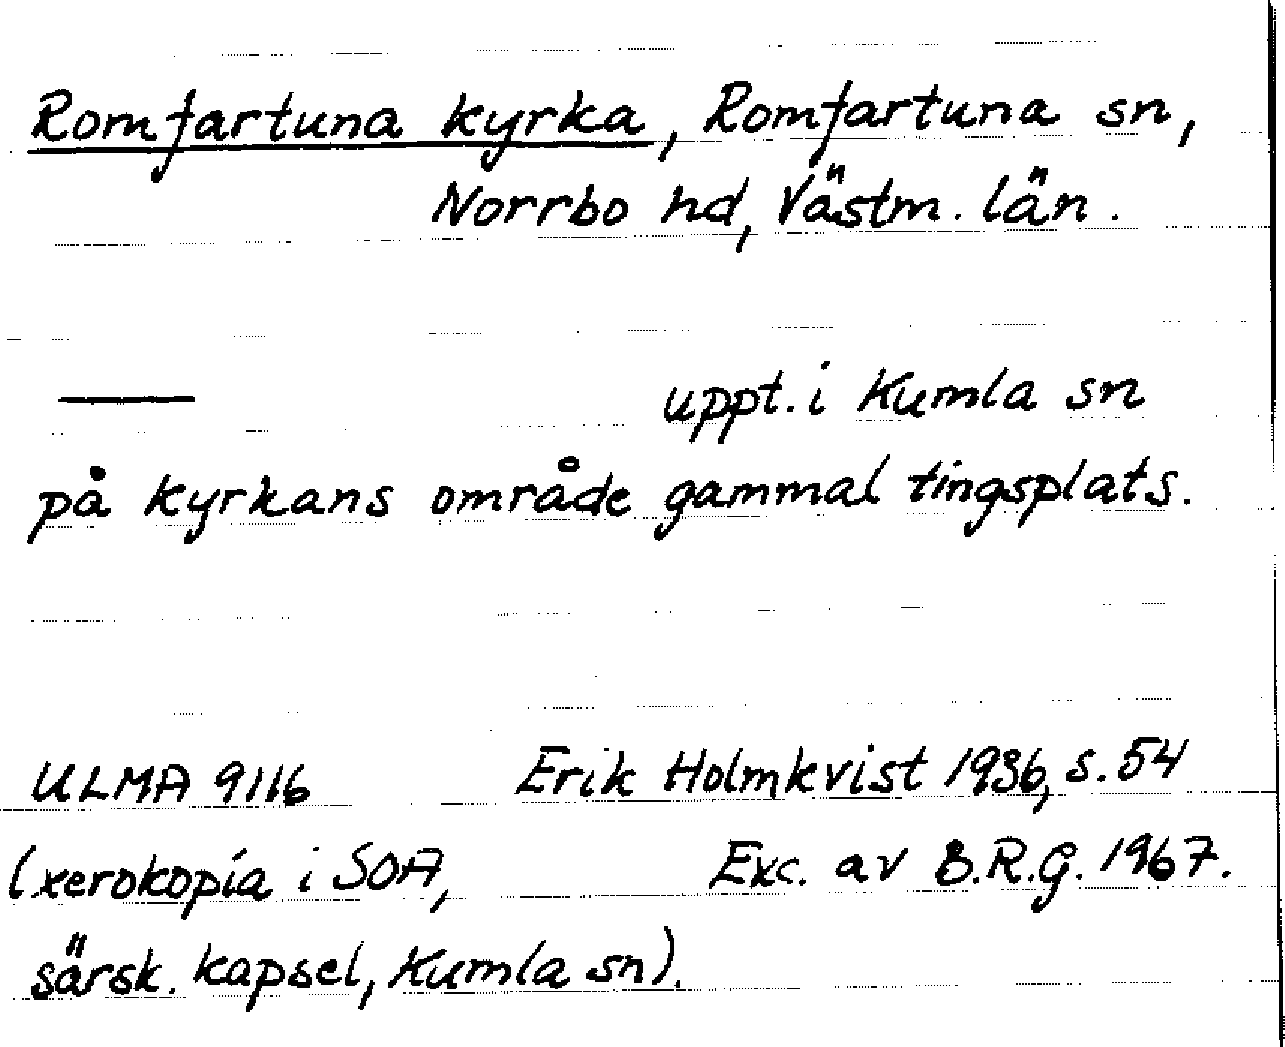 Romfartuna kyrka, Romfartuna sn,
Norrbo hd, Västm. län.
— uppt. i Kumla sn
på kyrkans område gammal tingsplats.
ULMA 9116 Erik Holmkvist 1936, s. 54
(xerokopia i SOA, Exc. av B.R.G. 1967.
särsk. kapsel, Kumla sn).